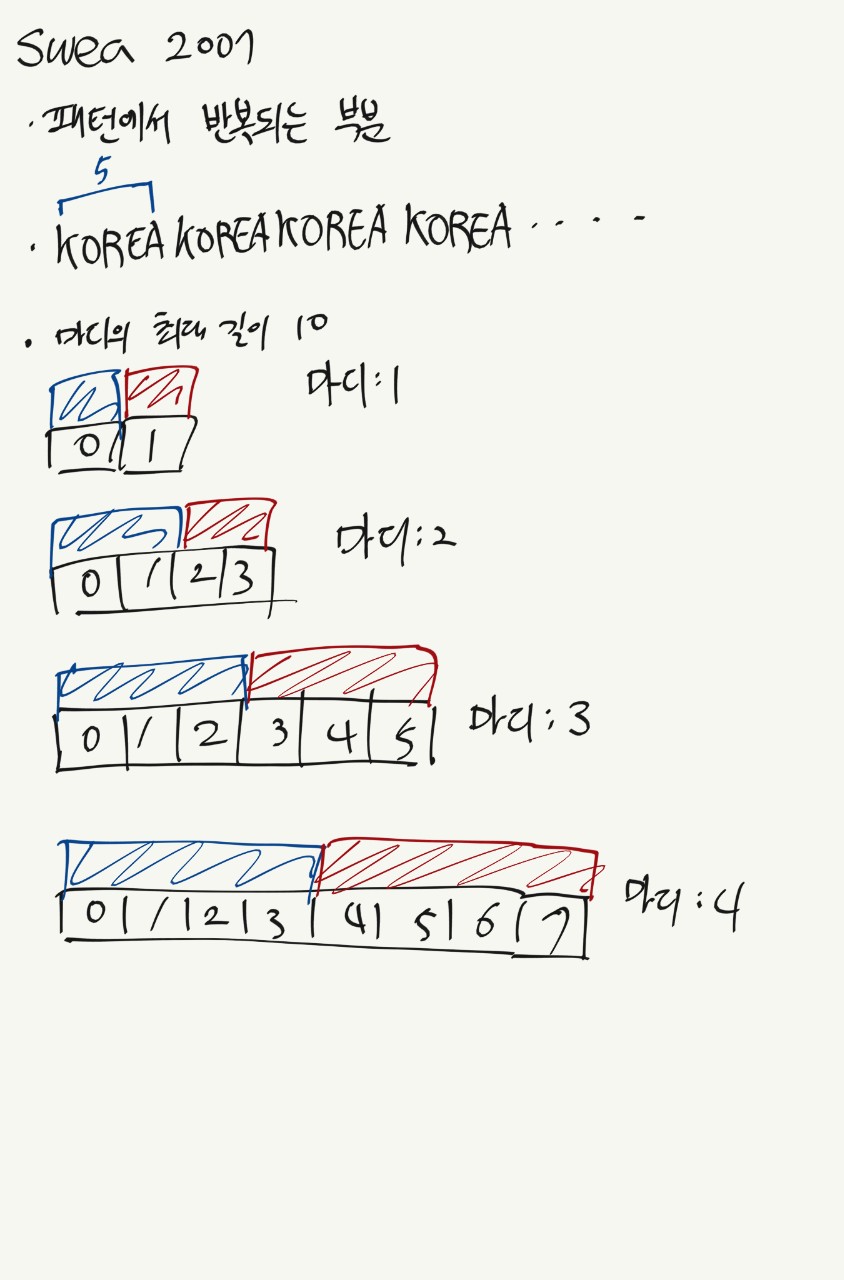 Swea 2007
· 패턴에서 반복되는 부분
5
· KOREA KOREA KOREA KOREA · · · ·
· 마디의 최대 길이 10
마디:1
0 1
마디:2
0 1 2 3
마디:3
0 1 2 3 4 5
마디:4
0 1 2 3 4 5 6 7